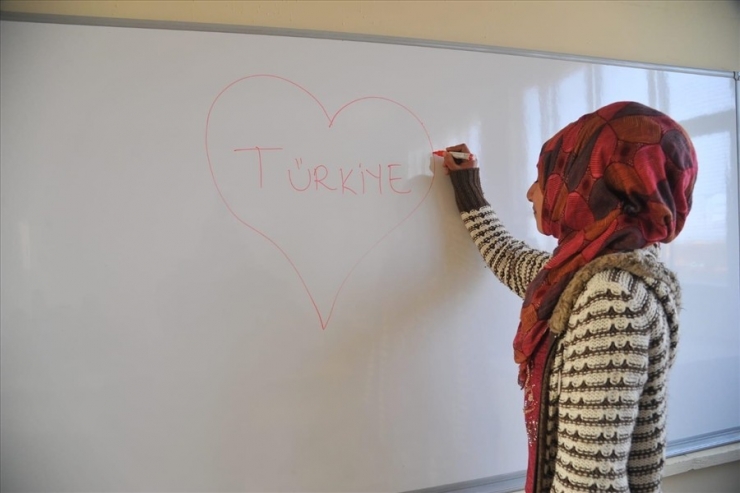 TÜRKİYE